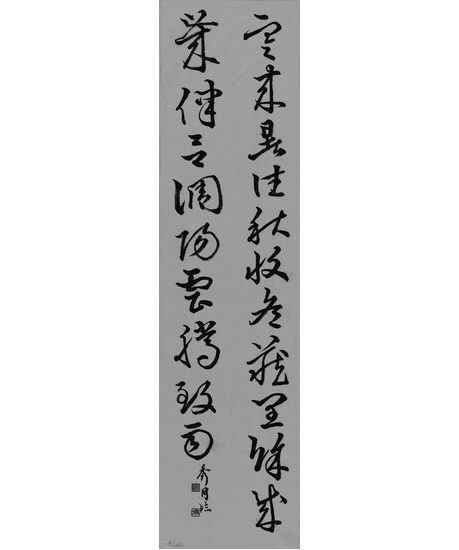 寒來暑往秋收冬藏閏餘成
歲律呂調陽雲騰致雨
秀月臨